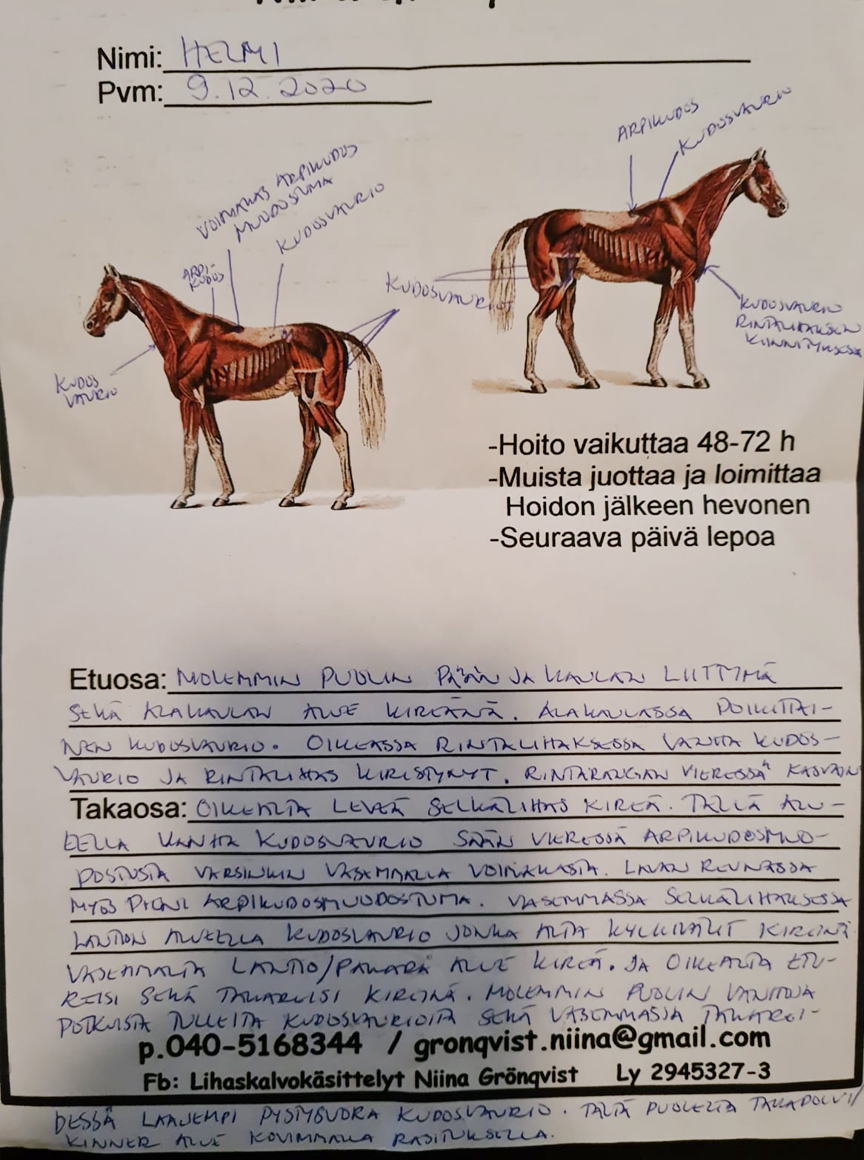 Nimi: HELMI
Pvm: 9.12.2020
ARPIKUDOS
KUDOSVAURIO
VOIMAKAS ARPIKUDOS
MUODOSTUMA
KUDOSVAURIO
ARPI-
KUDOS
KUDOSVAURIOT
KUDOS
VAURIO
KUDOSVAURIO
RINTALIHAKSEN
KIINNITYKSESSÄ
-Hoito vaikuttaa 48-72 h
-Muista juottaa ja loimittaa
Hoidon jälkeen hevonen
-Seuraava päivä lepoa
Etuosa: MOLEMMIN PUOLIN PÄÄN JA KAULAN LIITTYMÄ
SEKÄ ALAKAULAN ALUE KIREÄNÄ. ALAKAULASSA POIKITTAI-
NEN KUDOSVAURIO. OIKEASSA RINTALIHAKSESSA VANHA KUDOS-
VAURIO JA RINTALIHAS KIRISTYNYT. RINTARANGAN VIERESSÄ KASVAIN
Takaosa: OIKEALTA LEVEÄ SELKÄLIHAS KIREÄ. TÄLLÄ ALU-
EELLA VANHA KUDOSVAURIO SÄÄN VIERESSÄ ARPIKUDOSMUO-
DOSTUSTA VARSINKIN VASEMMALLA VOIMAKASTA. LAVAN REUNASSA
MYÖS PIENI ARPIKUDOSMUODOSTUMA. VASEMMASSA SELKÄLIHAKSESSA
LANTION ALUEELLA KUDOSVAURIO JONKA ALTA KYLKIVÄLIT KIREINÄ
VASEMMALTA LANTIO/PAKARA ALUE KIREÄ. JA OIKEALTA ETU-
REISI SEKÄ TAKAREISI KIREINÄ. MOLEMMIN PUOLIN VANHOJA
POTKUISTA TULLEITA KUDOSVAURIOITA SEKÄ VASEMMASSA TAKAREI-
p.040-5168344 / gronqvist.niina@gmail.com
Fb: Lihaskalvokäsittelyt Niina Grönqvist Ly 2945327-3
DESSÄ LAAJEMPI PYSTYSUORA KUDOSVAURIO. TÄLTÄ PUOLELTA TAKAPOLVI/
KINNER ALUE KOVIMMALLA RASITUKSELLA.